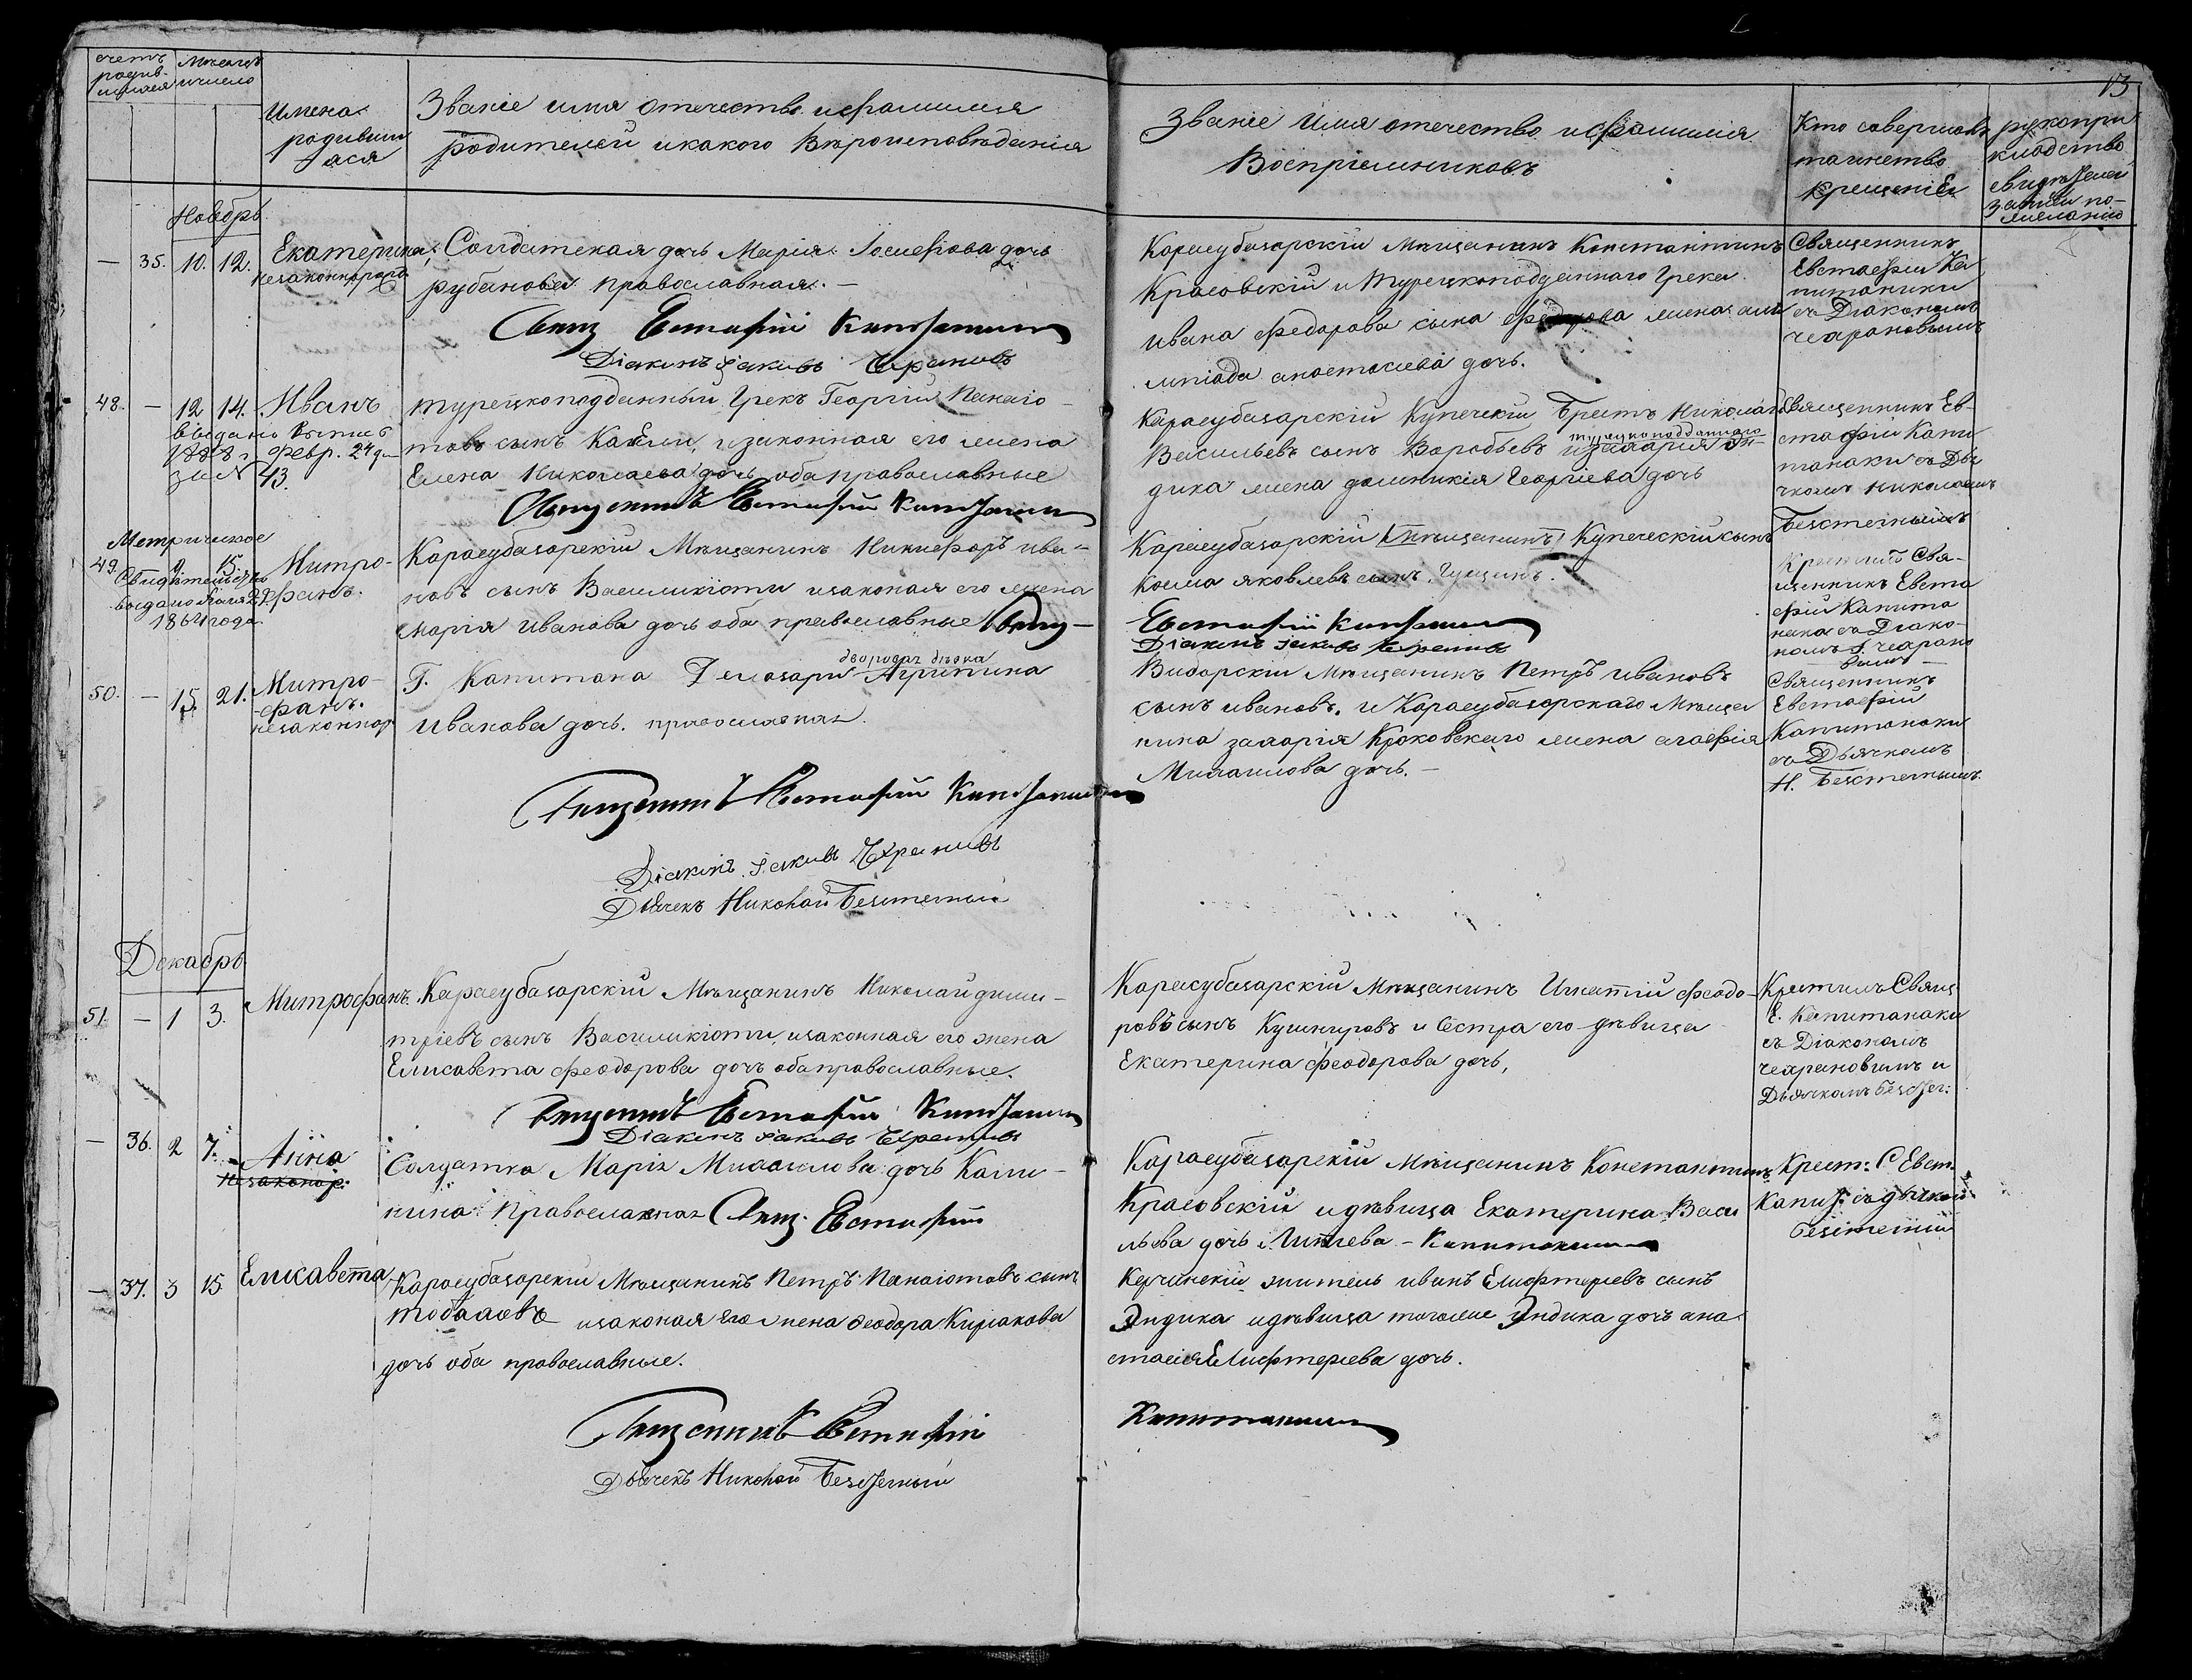 13
счетъ родив-шихся
Мѣсяцъ и число
Имена родившихся
Званіе имя отечество и фамилія
родителей и какого Вѣроисповѣданія
Званіе Имя отечество и фамилія
Воспріемниковъ
Кто совершалъ
таинство
крещенія
рукопри
кладство
свидѣтелей
записи по
желанію
Ноябрь
— 35. 10. 12. Екатерина
незаконнорожд
Солдатская дочь Марія Іосифова дочь
рубанова православная. —
Свящ Евстафій Капитанаки
Діаконъ Іаковъ Чехрановъ
Карасубазарскій Мѣщанинъ Константинъ
Красовскій и Турецкоподданнаго Грека
ивана федорова сына жена оли
мпіада анастасіева дочь.
Священникъ
Евстафій Ка
питанаки
съ Діакономъ
чехрановымъ
48. — 12 14. Иванъ
выдана выпись
февр. 24 дня
за N 43.
турецкоподданный Грекъ Георгій Панаіо-
товъ сынъ и законная его жена
Елена Николаева дочь оба православные
Священникъ Евстафій Капитанаки
Карасубазарскій Купеческій братъ Николай
Васильевъ сынъ Воробьевъ турецкоподданнаго
дика жена доминикія Георгіева дочь
Священникъ Ев-
стафій Капи
танаки съ Дья
чкомъ Николаемъ
Безстечнымъ
Метрическое
Свидѣтельство
выдано 29
1864 года
49. 9. 15. Митро-
фанъ.
Карасубазарскій Мѣщанинъ Никифоръ ива-
новъ сынъ Василикіоти и законая его жена
марія Иванова дочь оба православные Свящ-
Карасубазарскій (Мѣщанинъ) Купеческій сынъ
косма яковлевъ сынъ Гущинъ.
Евстафій Капитанаки
Діаконъ Іаковъ Чехрановъ
Крестилъ Свя-
щенникъ Евста
фій Капита
наки съ Діако-
номъ I. чехрано
вымъ —
50. — 15. 21. Митро-
фанъ.
незаконнор
дворовая дѣвка
Г. Капитана Агрипина
Иванова дочь. православная.
Священникъ Евстафій Капитанаки
Діаконъ Іаковъ Чехрановъ
Дьячекъ Николай
Мѣщанинъ Петръ ивановъ
сынъ ивановъ. и Карасубазарскаго Мѣща
нина захарія Кроковскаго жена агафія
Михаилова дочь. —
Священникъ
Евстафій
Капитанаки
съ Дьячкомъ
Н.
Декабрь
51. — 1 3. Митрофанъ.
Карасубазарскій Мѣщанинъ Николай дими-
тріевъ сынъ Василикіоти, и законная его жена
Елисавета феодорова дочь оба православные.
Священникъ Евстафій Капитанаки
Діаконъ Іаковъ Чехрановъ
Карасубазарскій Мѣщанинъ Игнатій феодо-
ровъ сынъ Кушнировъ и Сестра его дѣвица
Екатерина феодорова дочь,
Крестилъ Свящ
Е. Капитанаки
съ Діакономъ
чехрановымъ и
Дьячкомъ
— 36. 2 7. Анна
незаконор:
Солдатка Марія Михаилова дочь Кали-
нина Православная Свящ. Евстафій
Карасубазарскій Мѣщанинъ Константинъ
Красовскій и дѣвица Екатерина Васи
льева дочь – Капитанаки
Крест: С Евст.
Капит: съ дьячкомъ
— 37. 3 15. Елисавета
Карасубазарскій Мѣщанинъ Петръ Панаіотовъ сынъ
и законая его жена феодора Киріакова
дочь оба православные.
Священникъ Евстафій
Дьячекъ Николай
Керчинскій житель иванъ Елифтеріевъ сынъ
Эндика и дѣвица тогоже Эндика дочь ана-
стасія Елифтеріева дочь.
Капитанаки